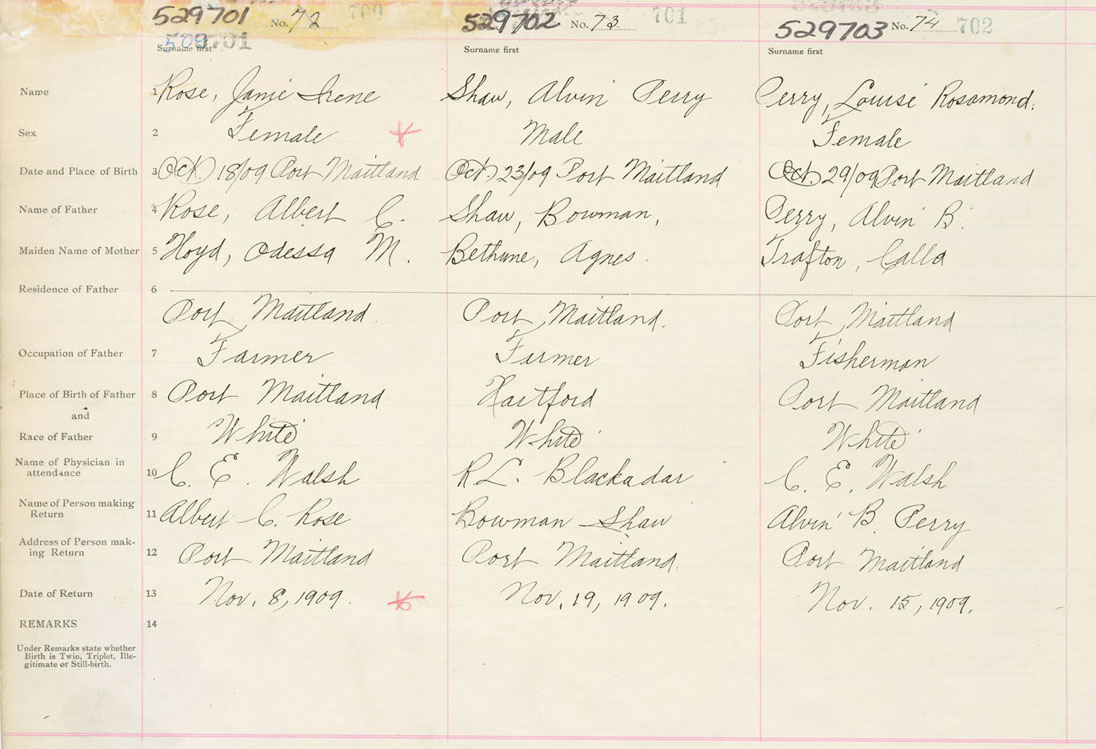 529701 No. 72 700 529702 No. 73 701 529703 No. 74 702
509701
Surname first Surname first Surname first
Name 1 Rose, Janie Irene Shaw, Alvin Perry Perry, Louise Rosamond.
Sex 2 Female Male Female
Date and Place of Birth 3 Oct. 18/09 Port Maitland Oct. 23/09 Port Maitland Oct. 29/09 Port Maitland
Name of Father 4 Rose, Albert C. Shaw, Bowman, Perry, Alvin B.
Maiden Name of Mother 5 Floyd, Odessa M. Bethune, Agnes. Trafton, Calla
Residence of Father 6
Port Maitland. Port Maitland. Port Maitland
Occupation of Father 7 Farmer Farmer Fisherman
Place of Birth of Father 8 Port Maitland Hartford Port Maitland
and
Race of Father 9 White White White
Name of Physician in
attendance 10 C. E. Walsh R L. Blackadar C. E. Walsh
Name of Person making
Return 11 Albert C. Rose Bowman Shaw Alvin B. Perry
Address of Person mak-
ing Return 12 Port Maitland Port Maitland. Port Maitland
Date of Return 13 Nov. 8, 1909. Nov. 19, 1909. Nov. 15, 1909.
REMARKS 14
Under Remarks state whether
Birth is Twin, Triplet, Ille-
gitimate or Still-birth.